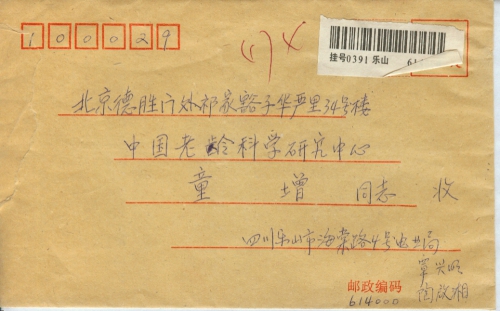 100029
挂号0391 乐山 61
北京德胜门外祁家豁子华严里34号楼
中国老龄科学研究中心
童 增 同志 收
四川乐山市海棠路4号电业局
邮政编码
614000